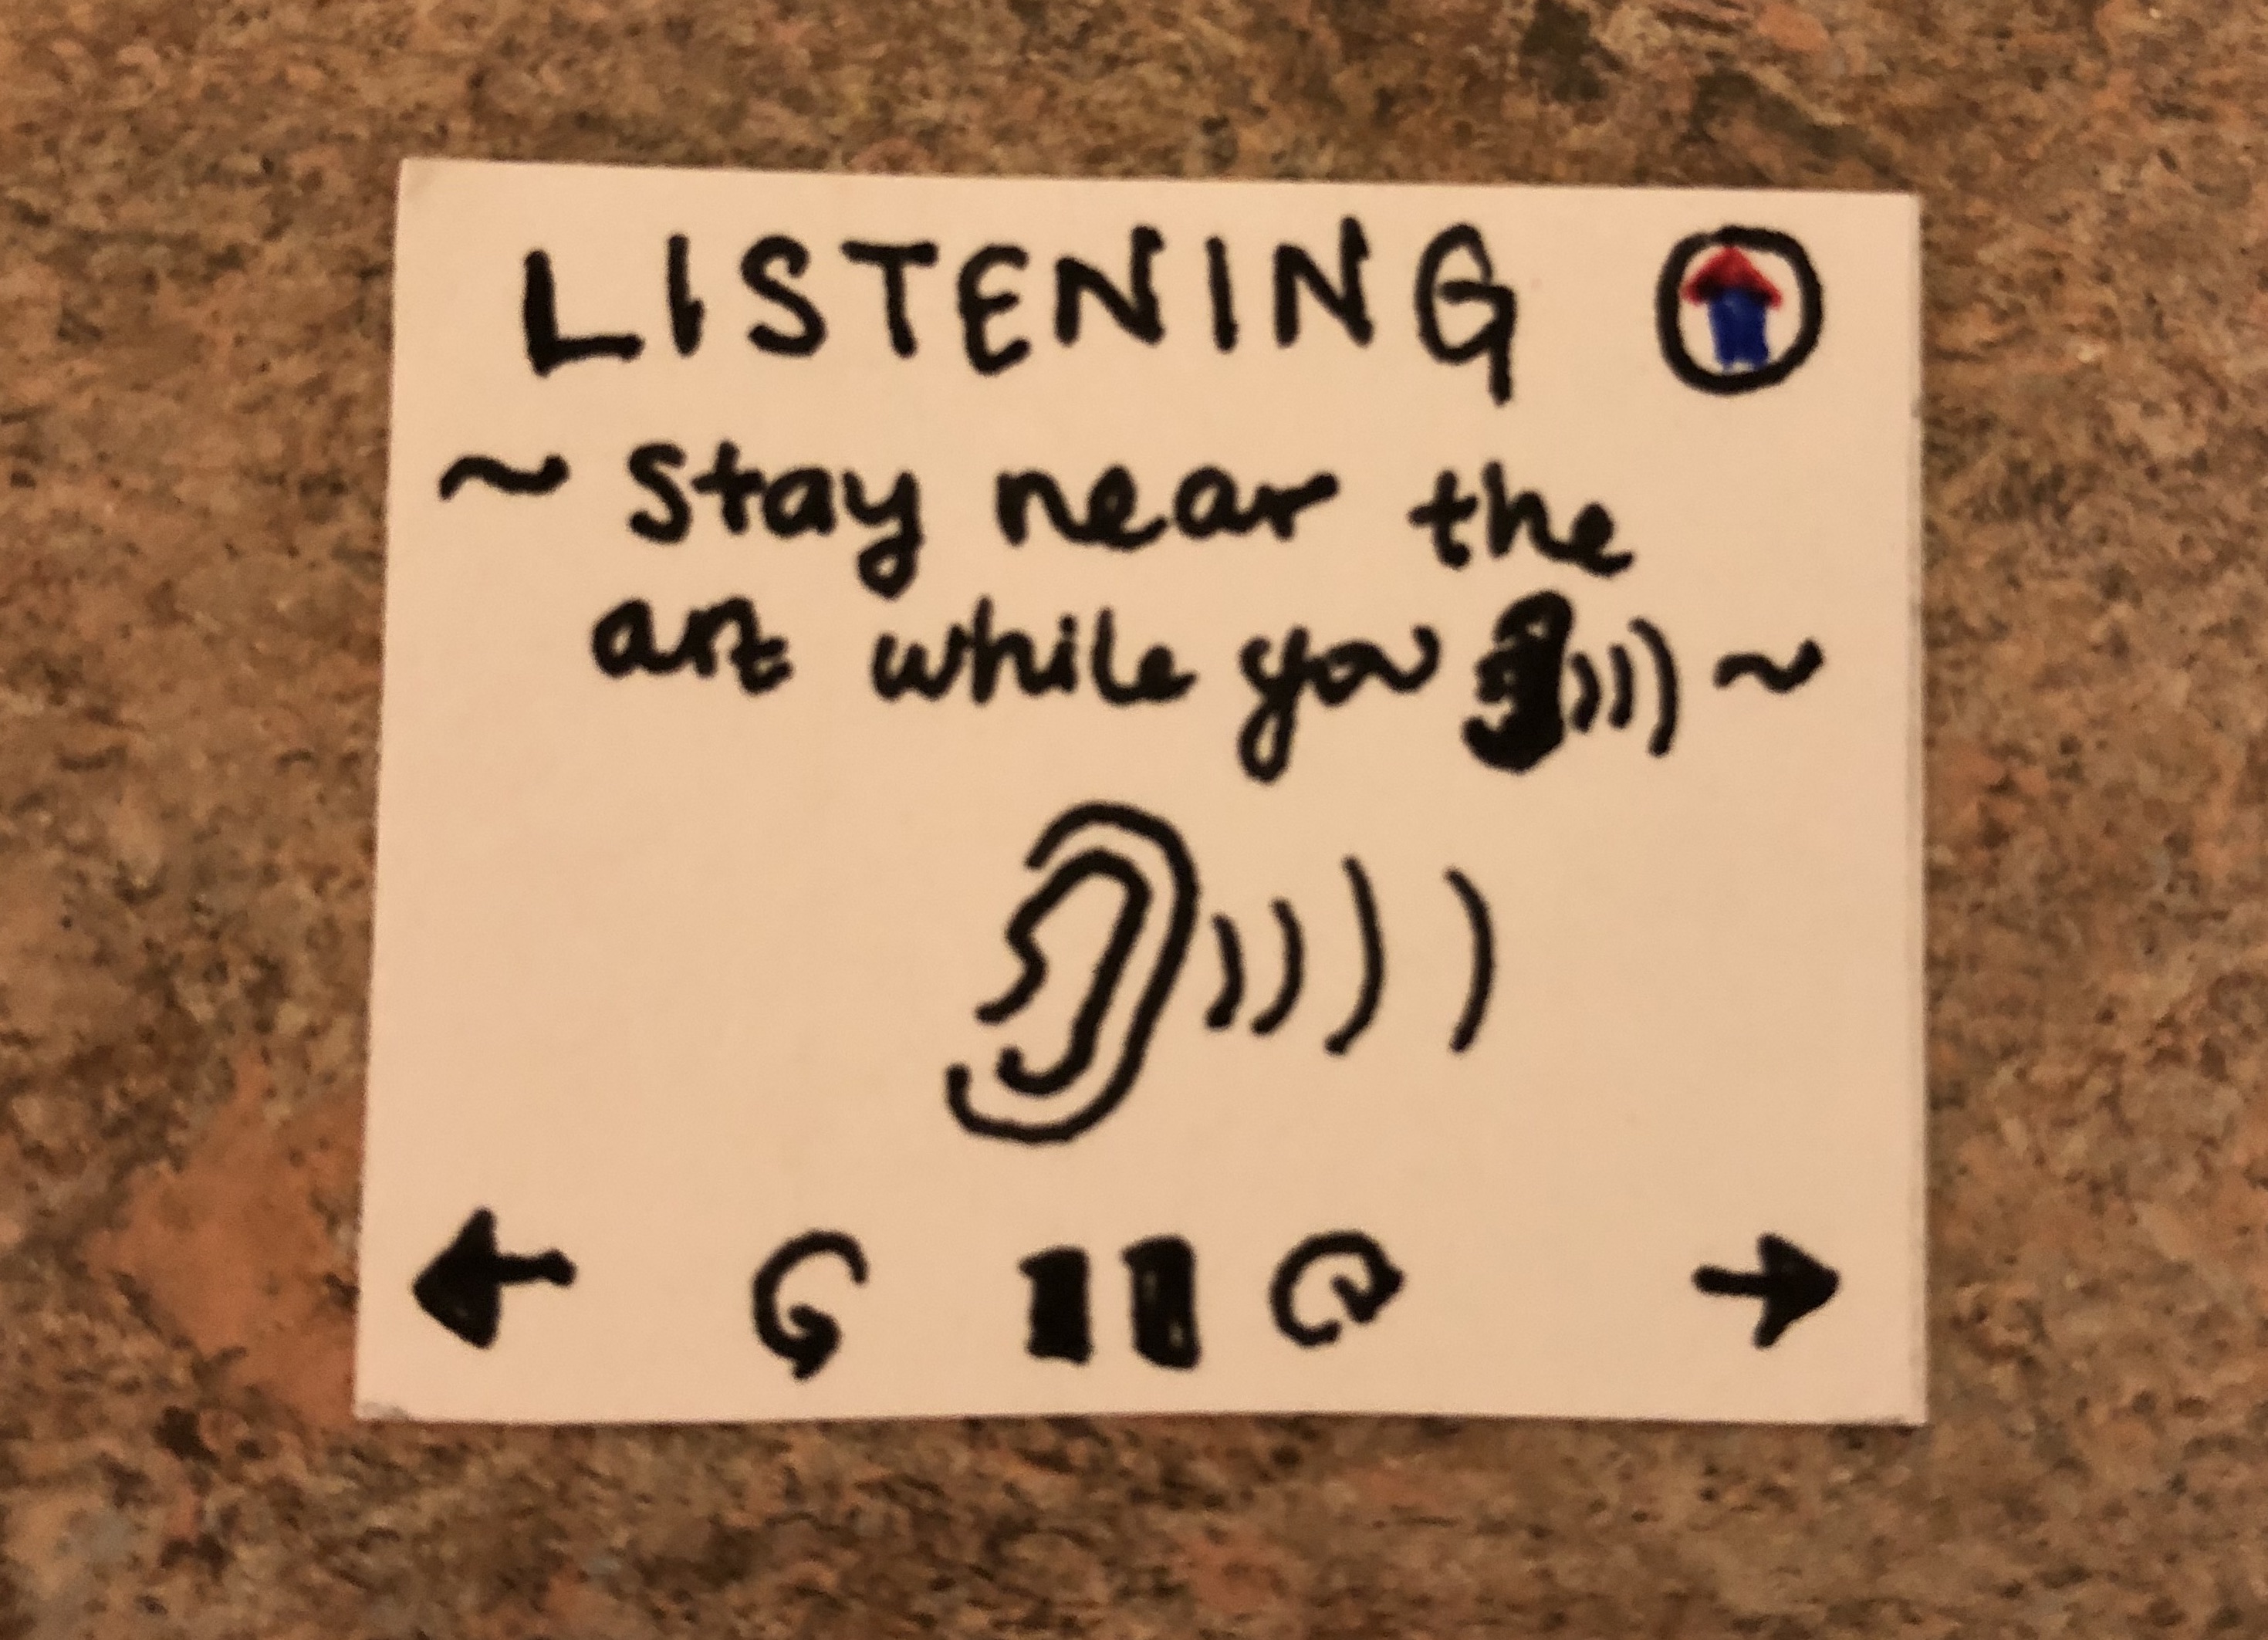 LISTENING
~ Stay near the
art while you ~